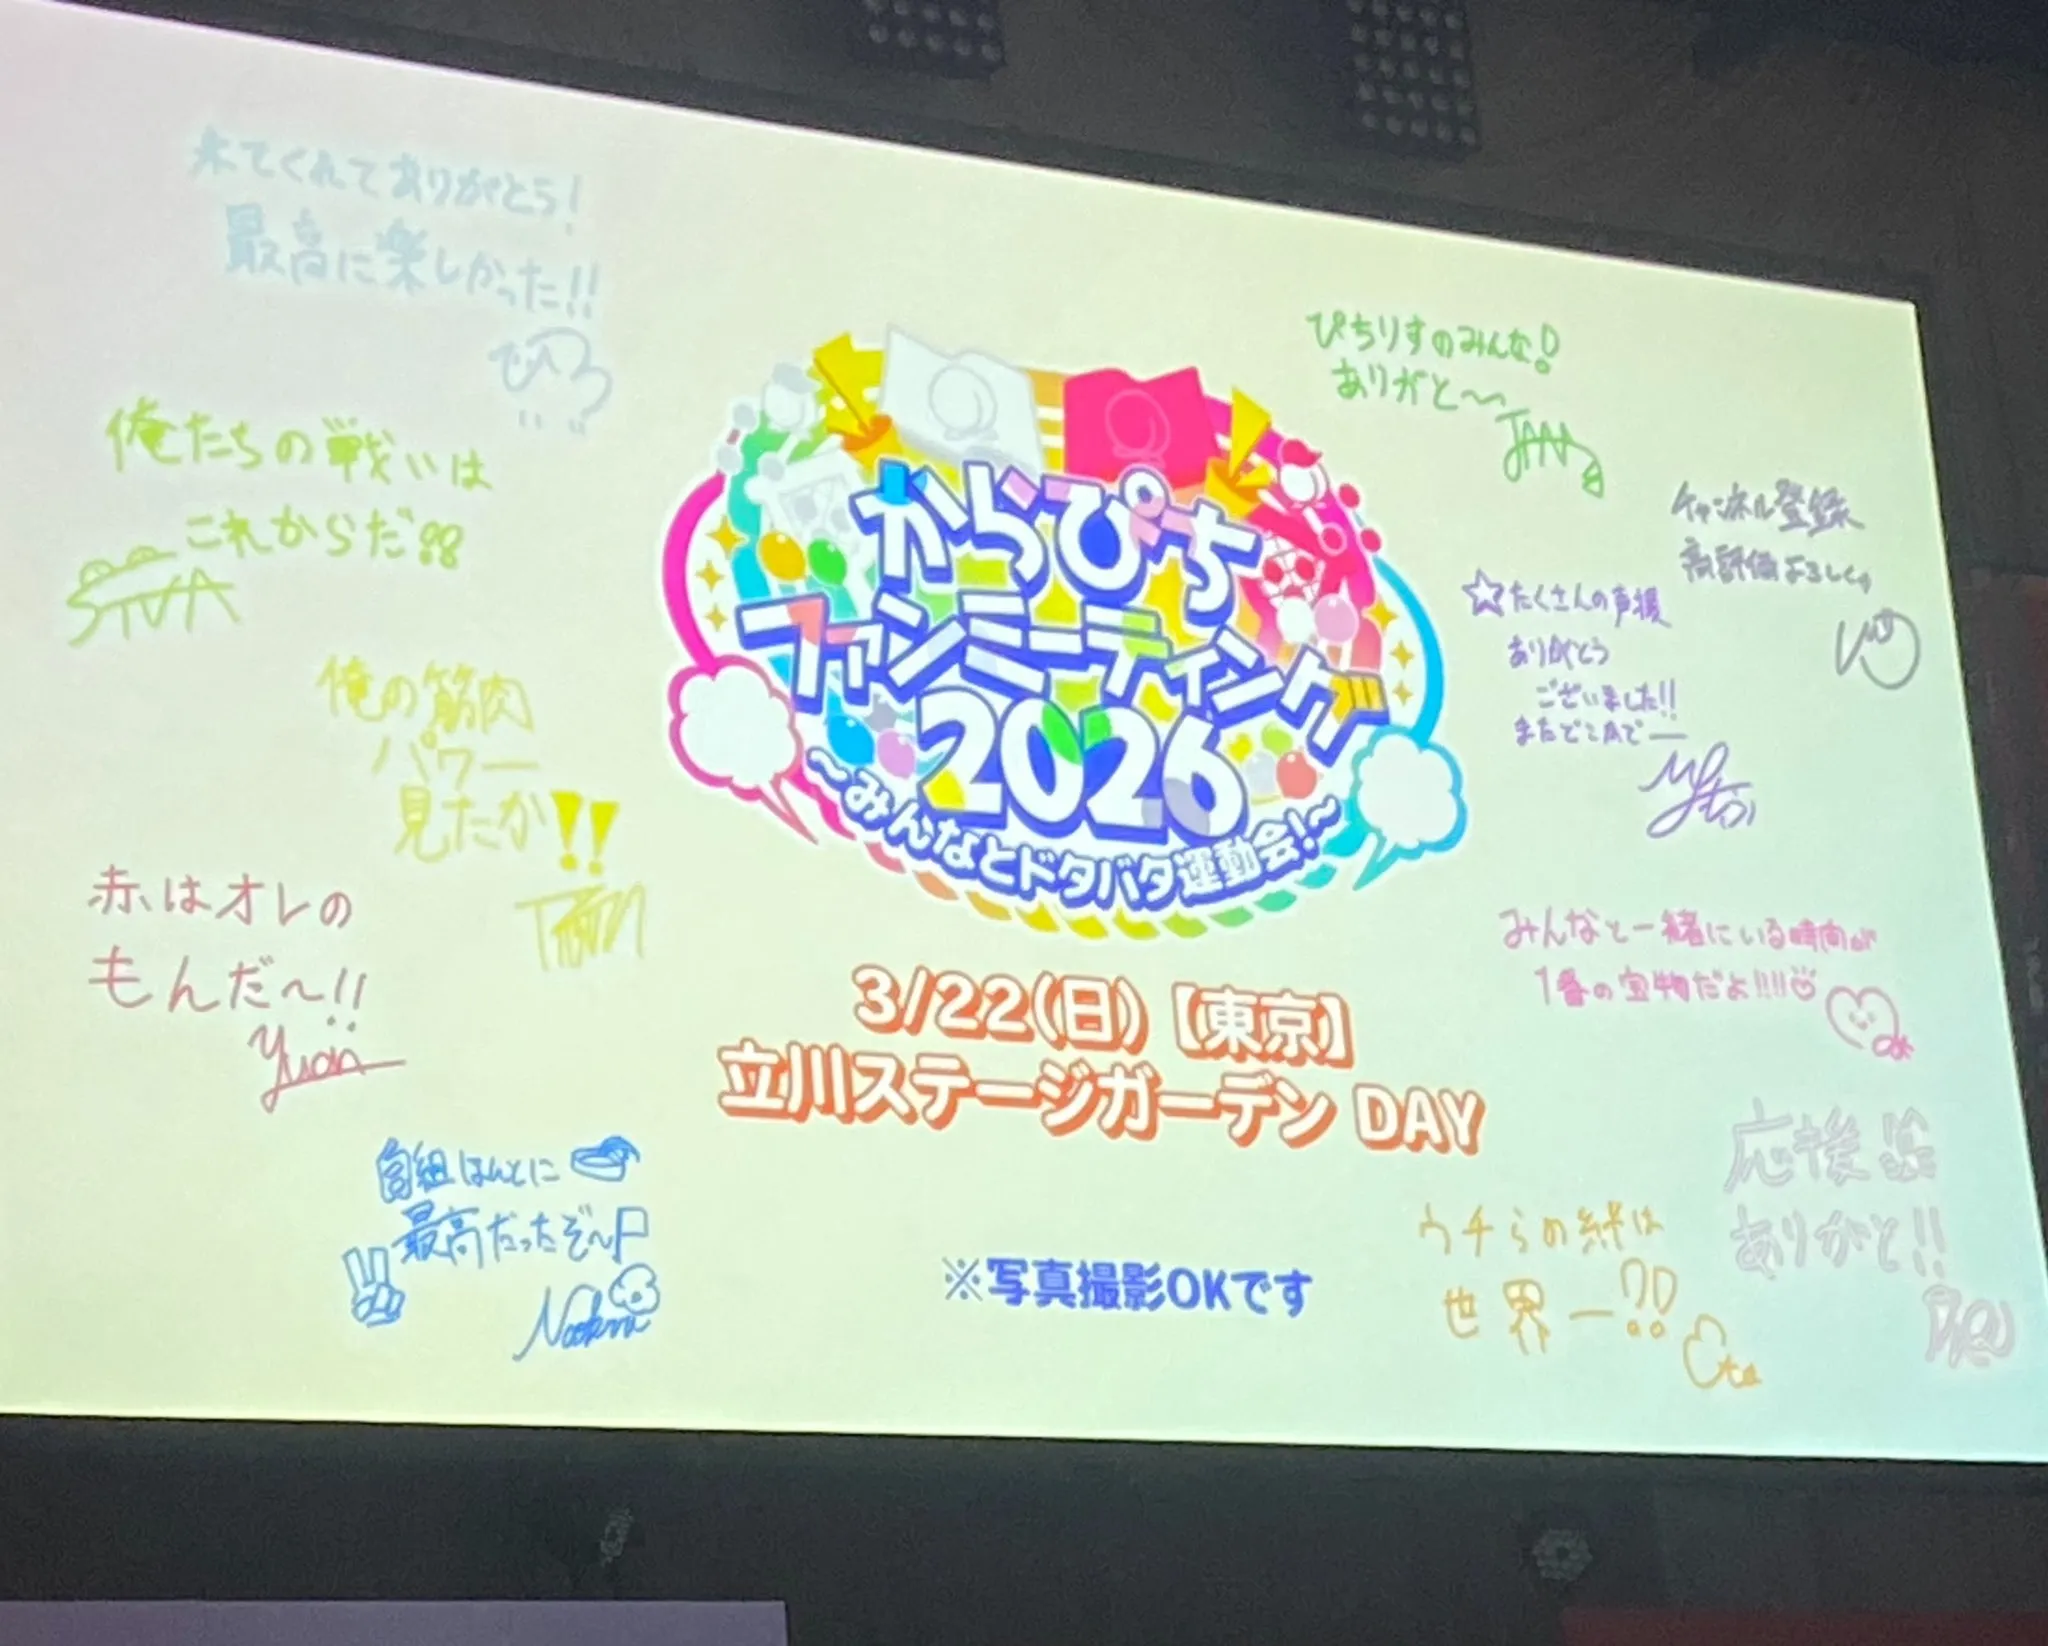 来てくれてありがとう!
最高に楽しかった!!
俺たちの戦いは
これからだ!!
俺の筋肉
パワー
見たか!!
赤はオレの
もんだ〜!!
Yuan
白組ほんとに
最高だったぞ〜
からぴち
ファンミーティング
2026
〜みんなとドタバタ運動会!〜
3/22(日)【東京】
立川ステージガーデン DAY
※写真撮影OKです
ぴちりすのみんな!
ありがと〜
チャンネル登録
高評価よろしく
☆たくさんの声援
ありがとう
ございました!!
またどこかで―
みんなと一緒にいる時間が
1番の宝物だよ!!!!
応援
ありがと!!
ウチらの絆は
世界一!!